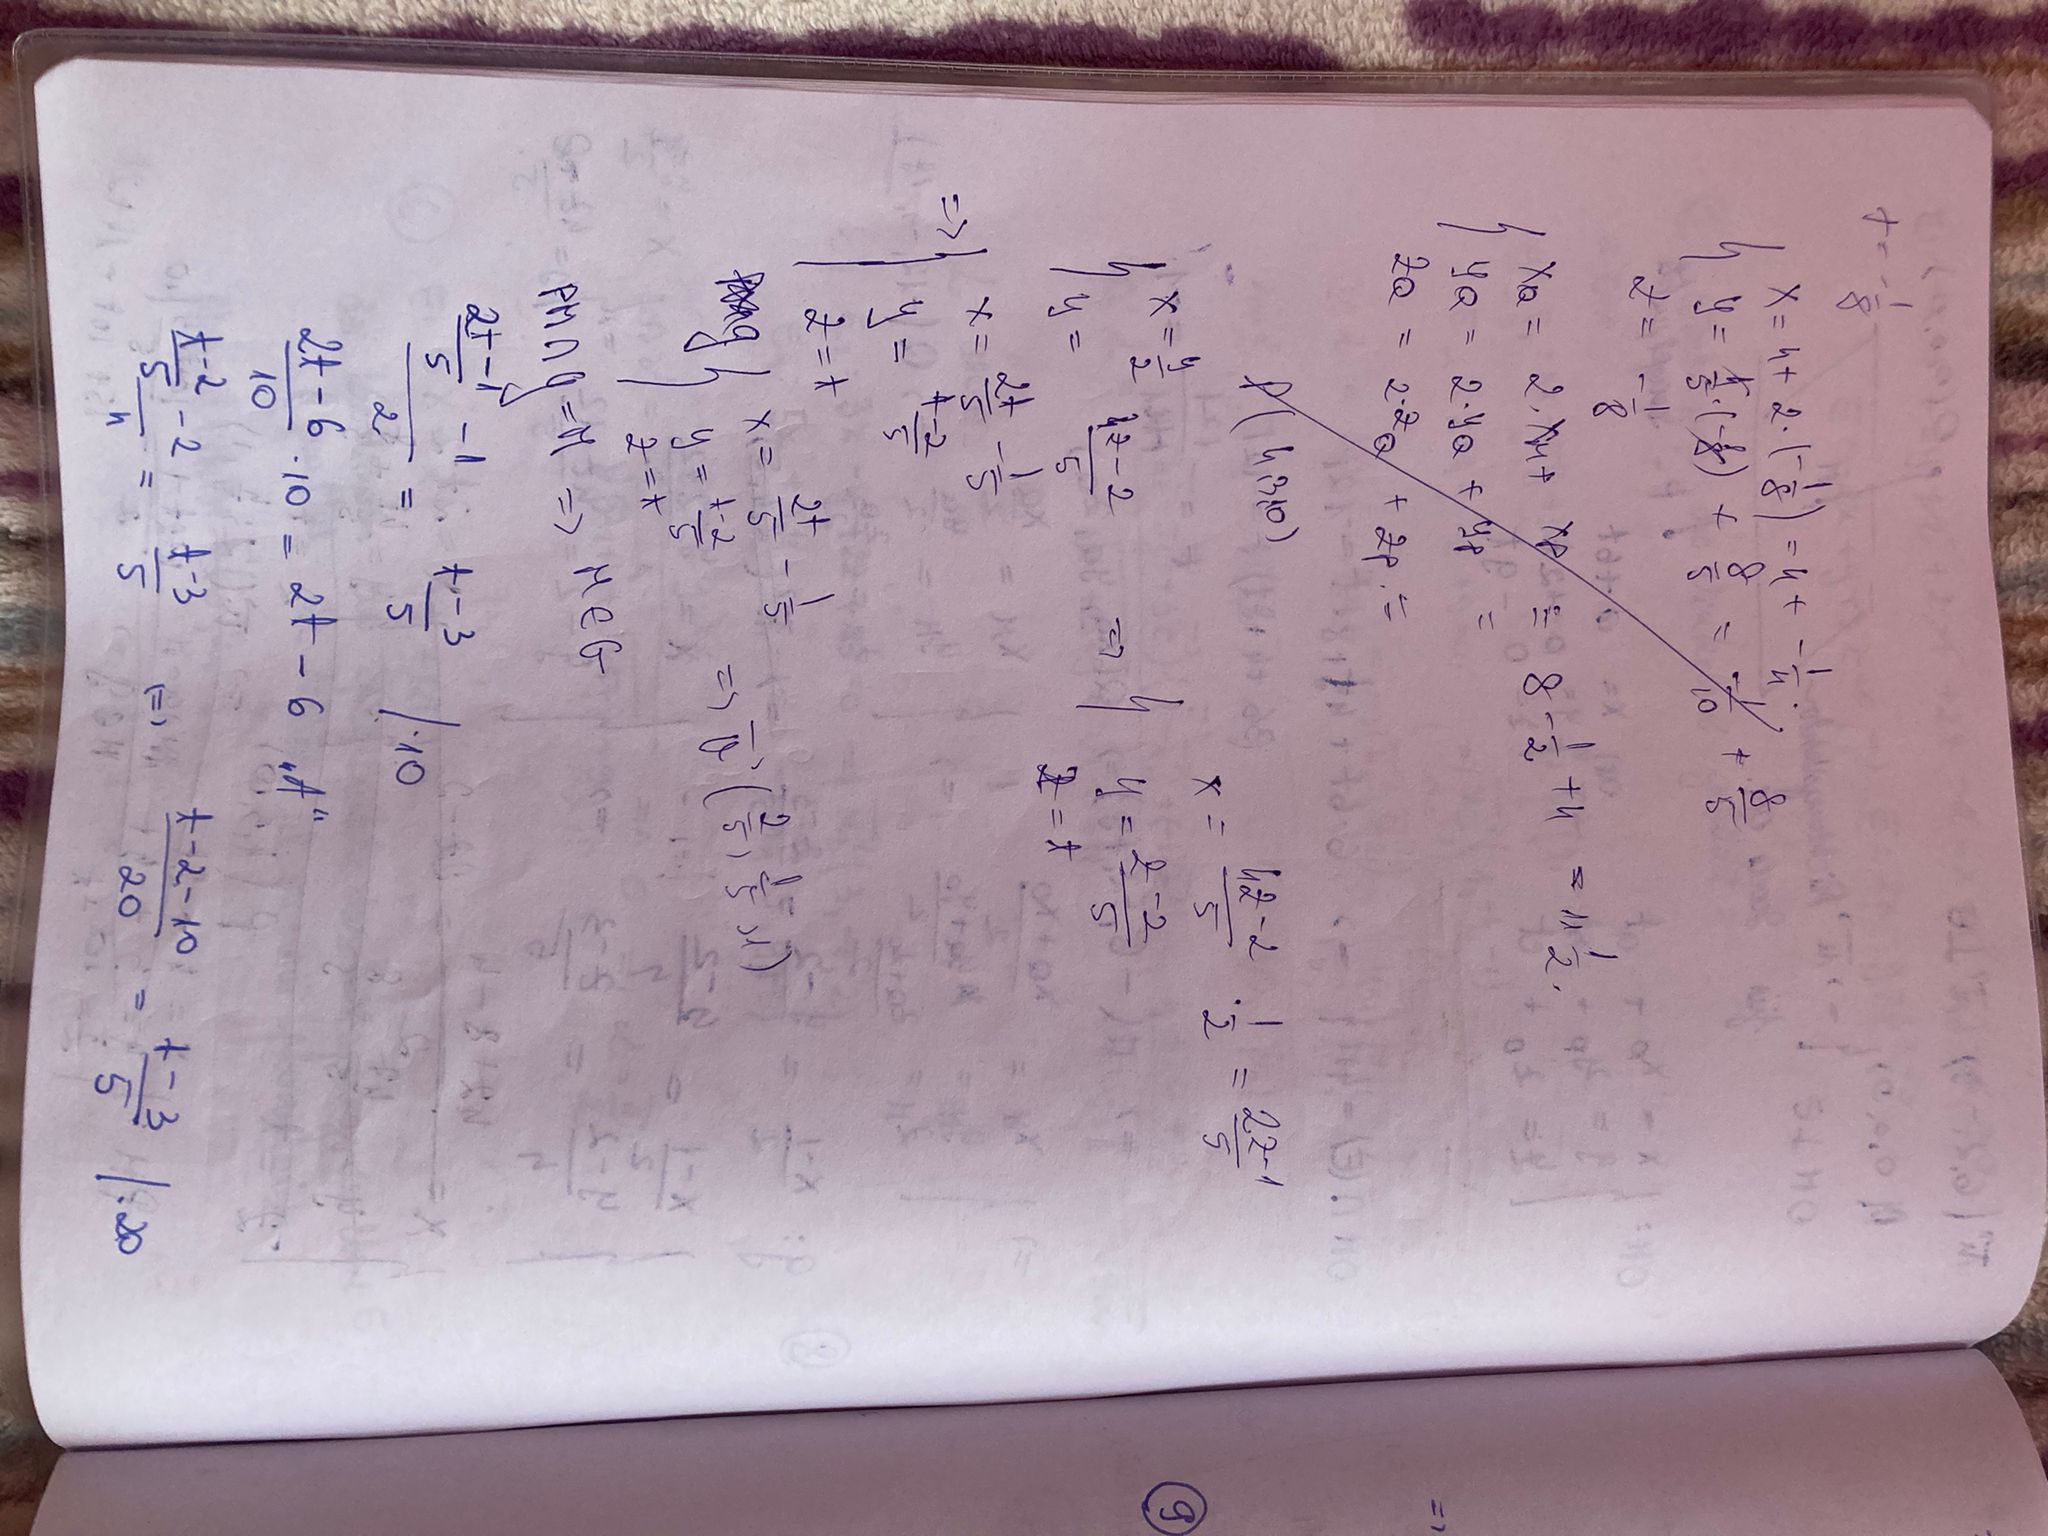 t = -1/8
x = 4 + 2·(-1/8) = 4 + -1/4.
y = 4/5·(-1/8) + 8/5 = -1/10 + 8/5
z = -1/8
xQ = 2·xM + xP = 8 - 1/2 + 4 = 11 1/2.
yQ = 2·yQ + yP =
zQ = 2·zQ + zP. =
P(4,3,0)
x = y/2
y = (4z-2)/5
=> x = (4z-2)/5 · 1/2 = (2z-1)/5
y = (z-2)/5
z = t
=> x = 2t/5 - 1/5
y = (t-2)/5
z = t
g x = 2t/5 - 1/5
y = (t-2)/5 => v→(2/5, 1/5, 1)
z = t
PM∩g = M => M∈G
((2t-1)/5 - 1)/2 = (t-3)/5 /·10
(2t-6)/10 · 10 = 2t - 6 „A“
((t-2)/5 - 2)/4 = (t-3)/5 => (t-2-10)/20 = (t-3)/5 /·20
=>
9